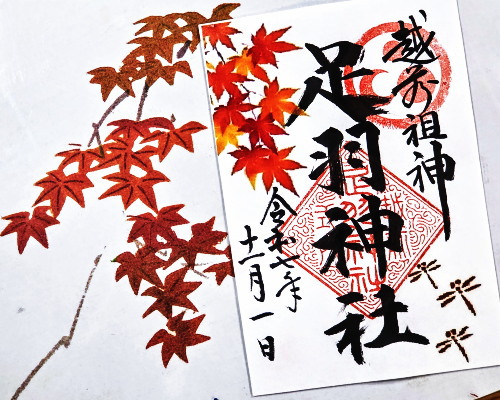 越前祖神
足羽神社
令和七年
十一月一日